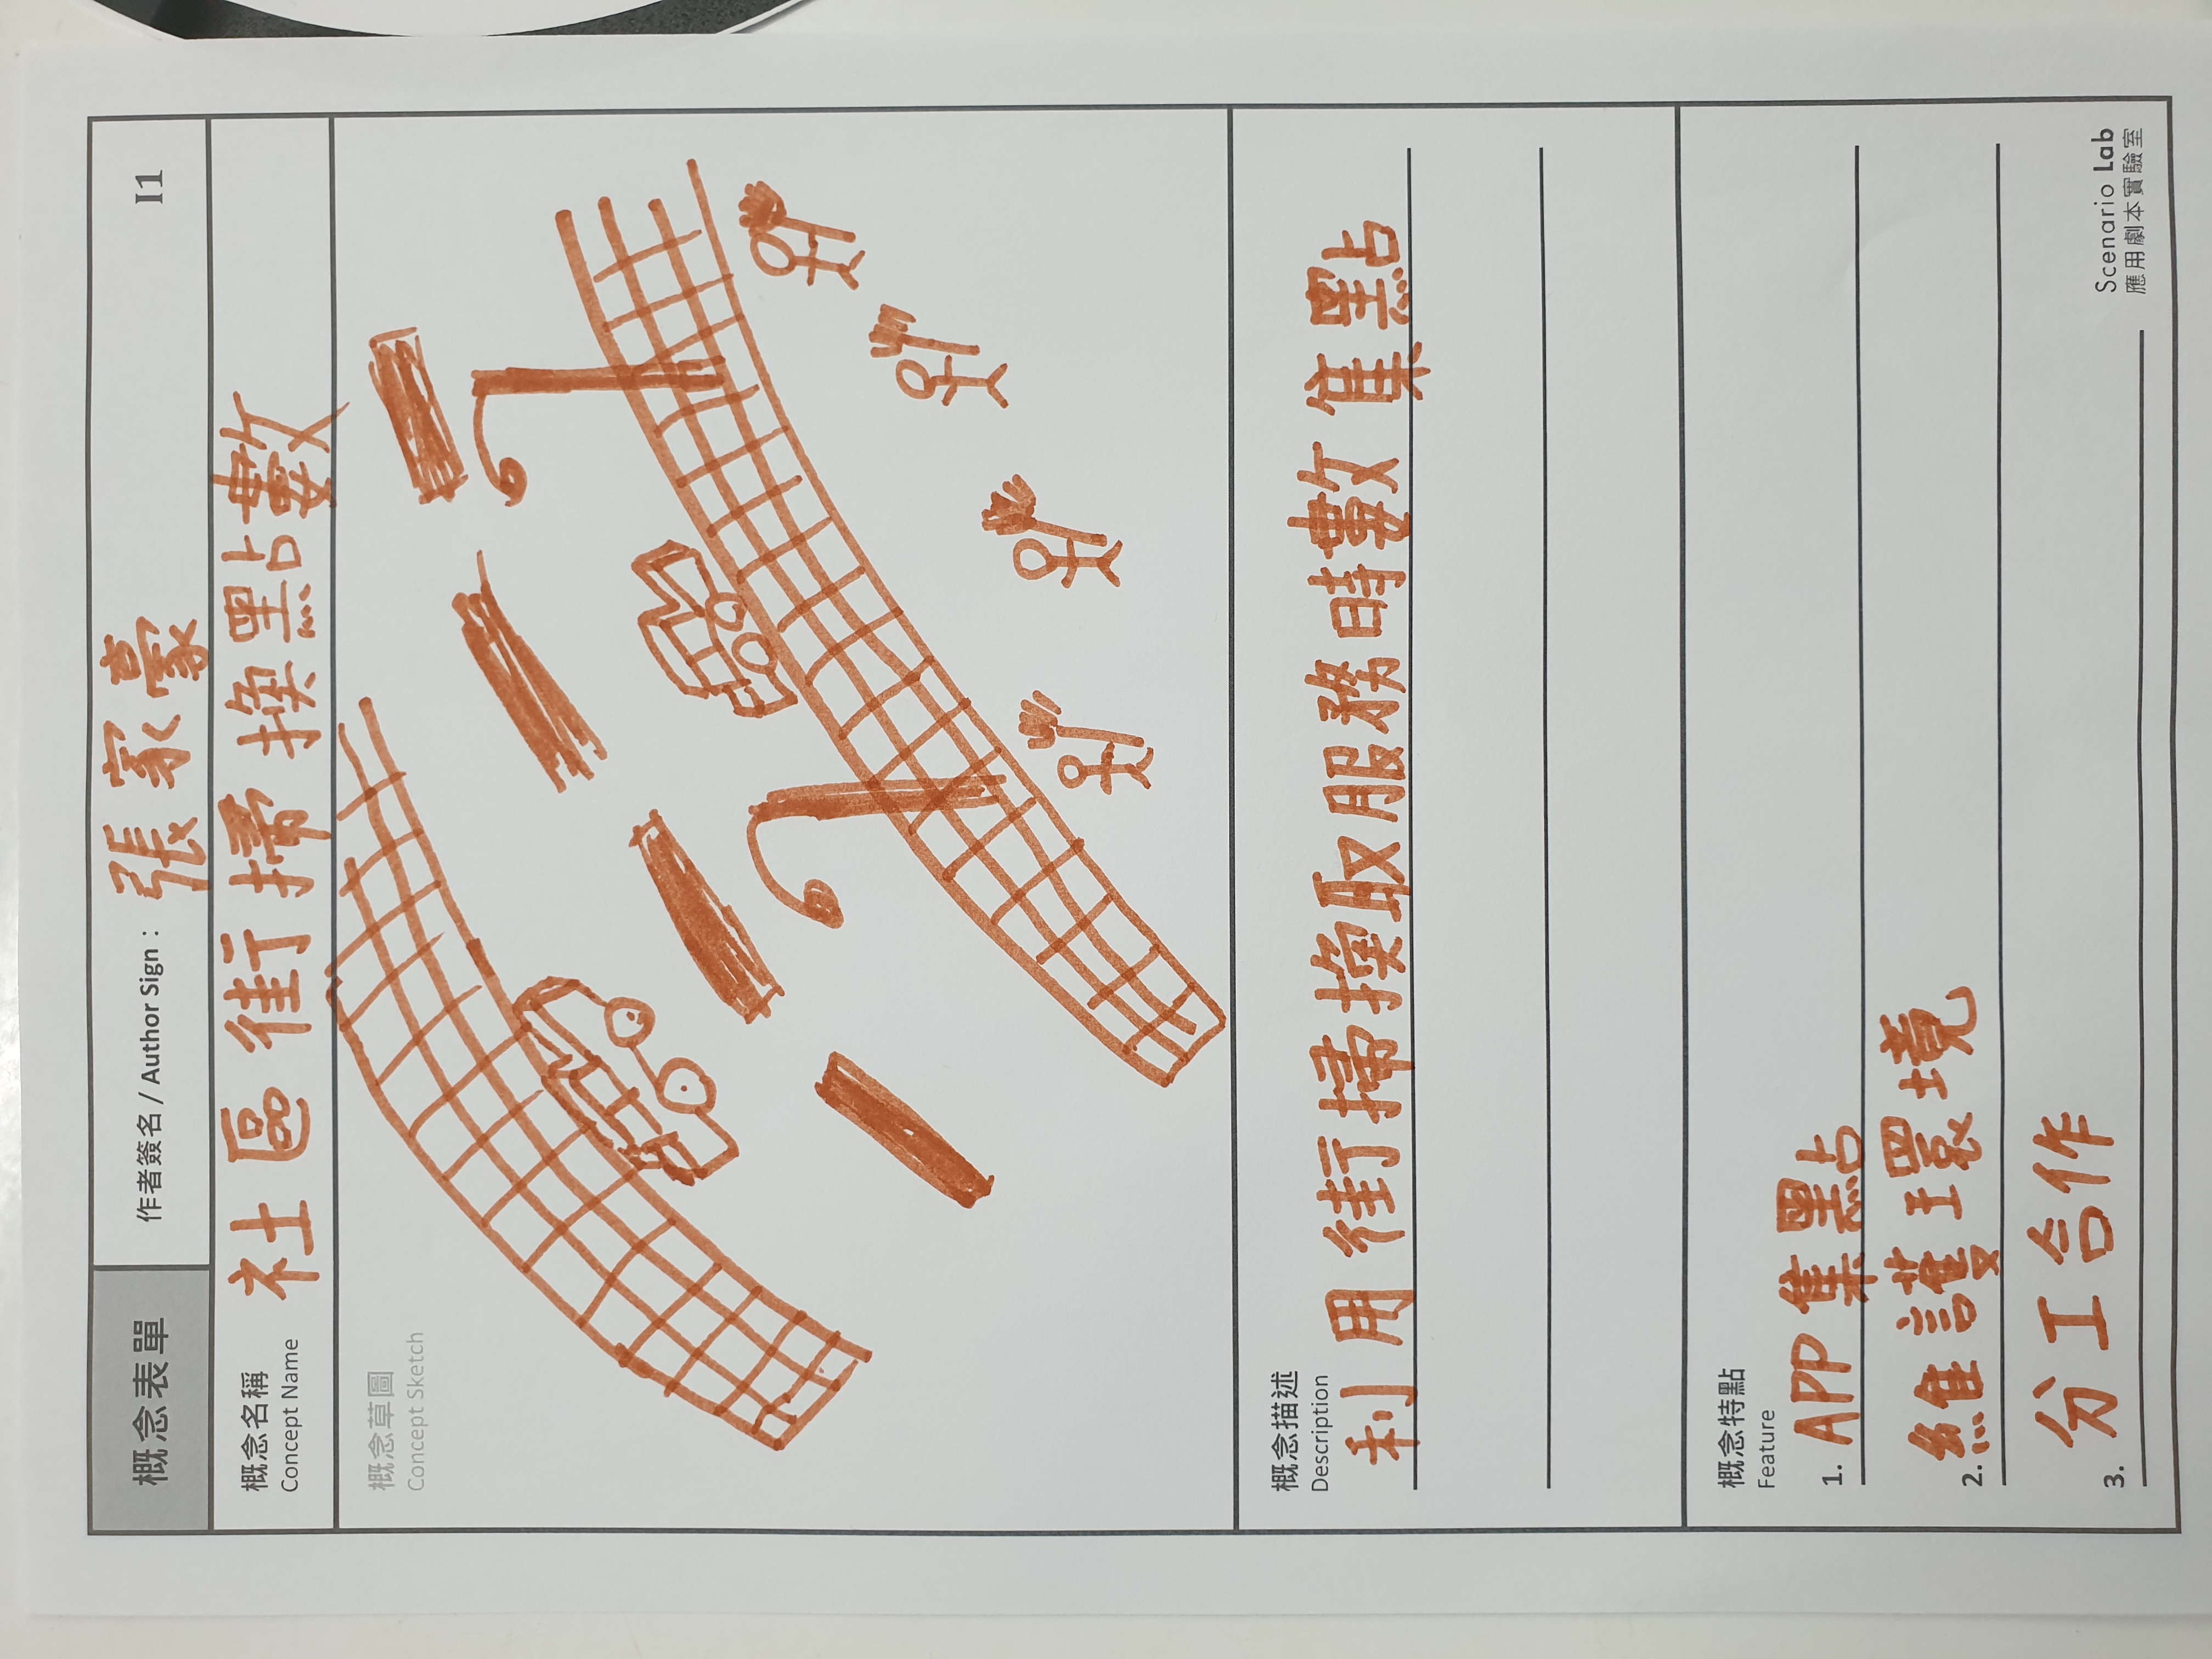 概念表單
作者簽名 / Author Sign： 張家豪
I1
概念名稱
Concept Name
社區街掃換點數
概念草圖
Concept Sketch
概念描述
Description
利用街掃換取服務時數集點
概念特點
Feature
1. APP集點
2. 維護環境
3. 分工合作
Scenario Lab
應用劇本實驗室